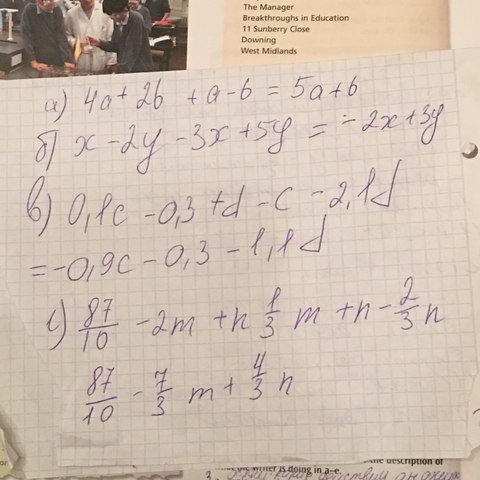 The Manager
Breakthroughs in Education
11 Sunberry Close
Downing
West Midlands
а) 4a + 2b + a - b = 5a + b
б) x - 2y - 3x + 5y = -2x + 3y
в) 0,1c - 0,3 + d - c - 2,1d
= -0,9c - 0,3 - 1,1d
г) 87/10 - 2m + n 1/3 m + n - 2/3 n
87/10 - 7/3 m + 4/3 n
the description of
the writer is doing in a–e.